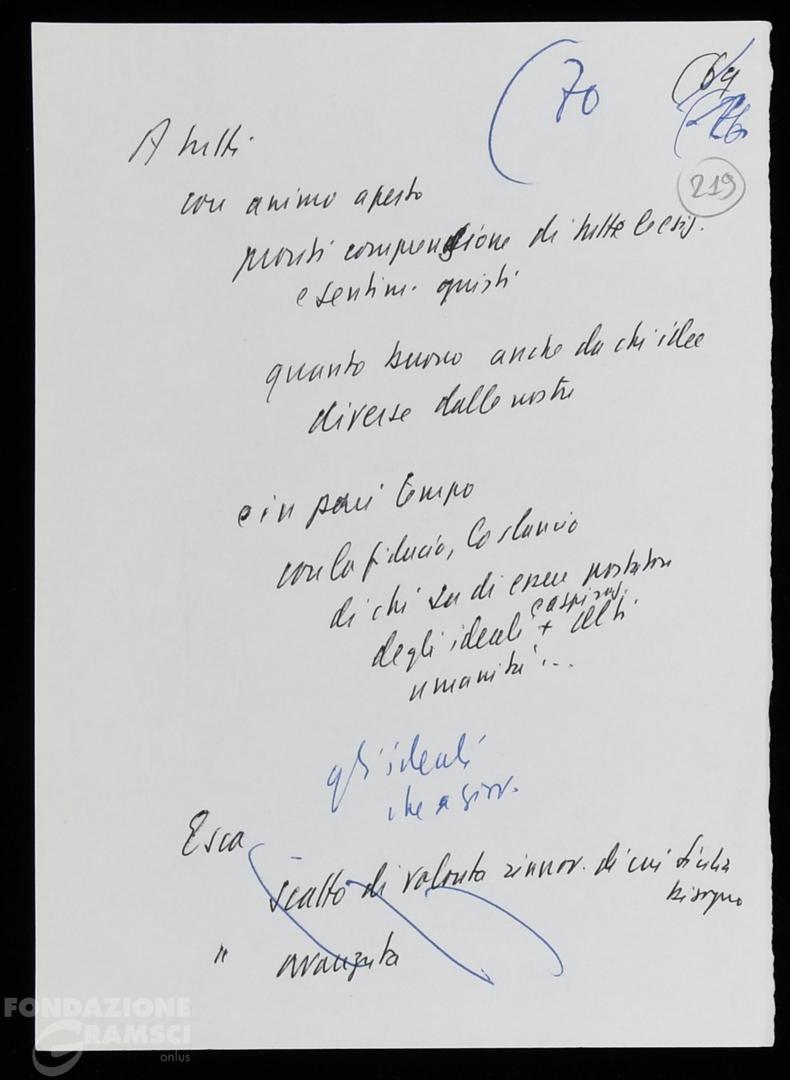 (70
(69
(76
219
A tutti
con animo aperto
pronti comprensione di tutte le esig.
e sentim. giusti
quanto buono anche da chi idee
diverse dalle nostre
e in pari tempo
con la fiducia, lo slancio
di chi sa di essere portatore
e aspiraz.
degli ideali + alti
umanità...
gli ideali
che a giov.
Esca
scatto di volontà rinnov. di cui Sicilia
bisogno
" avanzata
FONDAZIONE
GRAMSCI
onlus